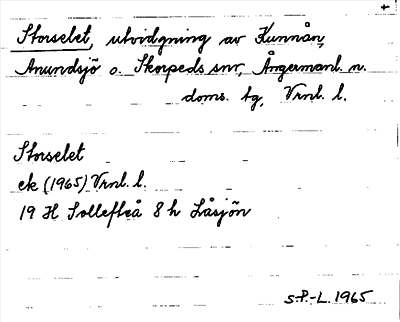 +
Storselet, utvidgning av Kunnån,
Anundsjö o. Skorpeds snr, Ångermanl. n.
doms. tg, Vrnl. l.
Storselet
ek (1965) Vrnl. l.
19 H Sollefteå 8 h Låsjön
S.P.-L. 1965